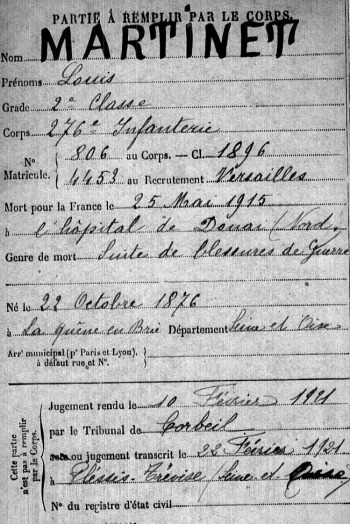 PARTIE À REMPLIR PAR LE CORPS.
MARTINET
Nom
Prénoms Louis
Grade 2e Classe
Corps 276e Infanterie
No 806 au Corps. — Cl. 1896
Matricule. 4453 au Recrutement Versailles
Mort pour la France le 25 Mai 1915
à l'hôpital de Douai (Nord)
Genre de mort Suite de blessures de Guerre
Né le 22 Octobre 1876
à La queue en Brie Département Seine et Oise
Arrt municipal (pr Paris et Lyon),
à défaut rue et No.
Cette partie
n'est pas à remplir
par le Corps.
Jugement rendu le 10 Février 1921
par le Tribunal de Corbeil
acte ou jugement transcrit le 22 Février 1921
à Plessis-Trévise (Seine et
No du registre d'état civil